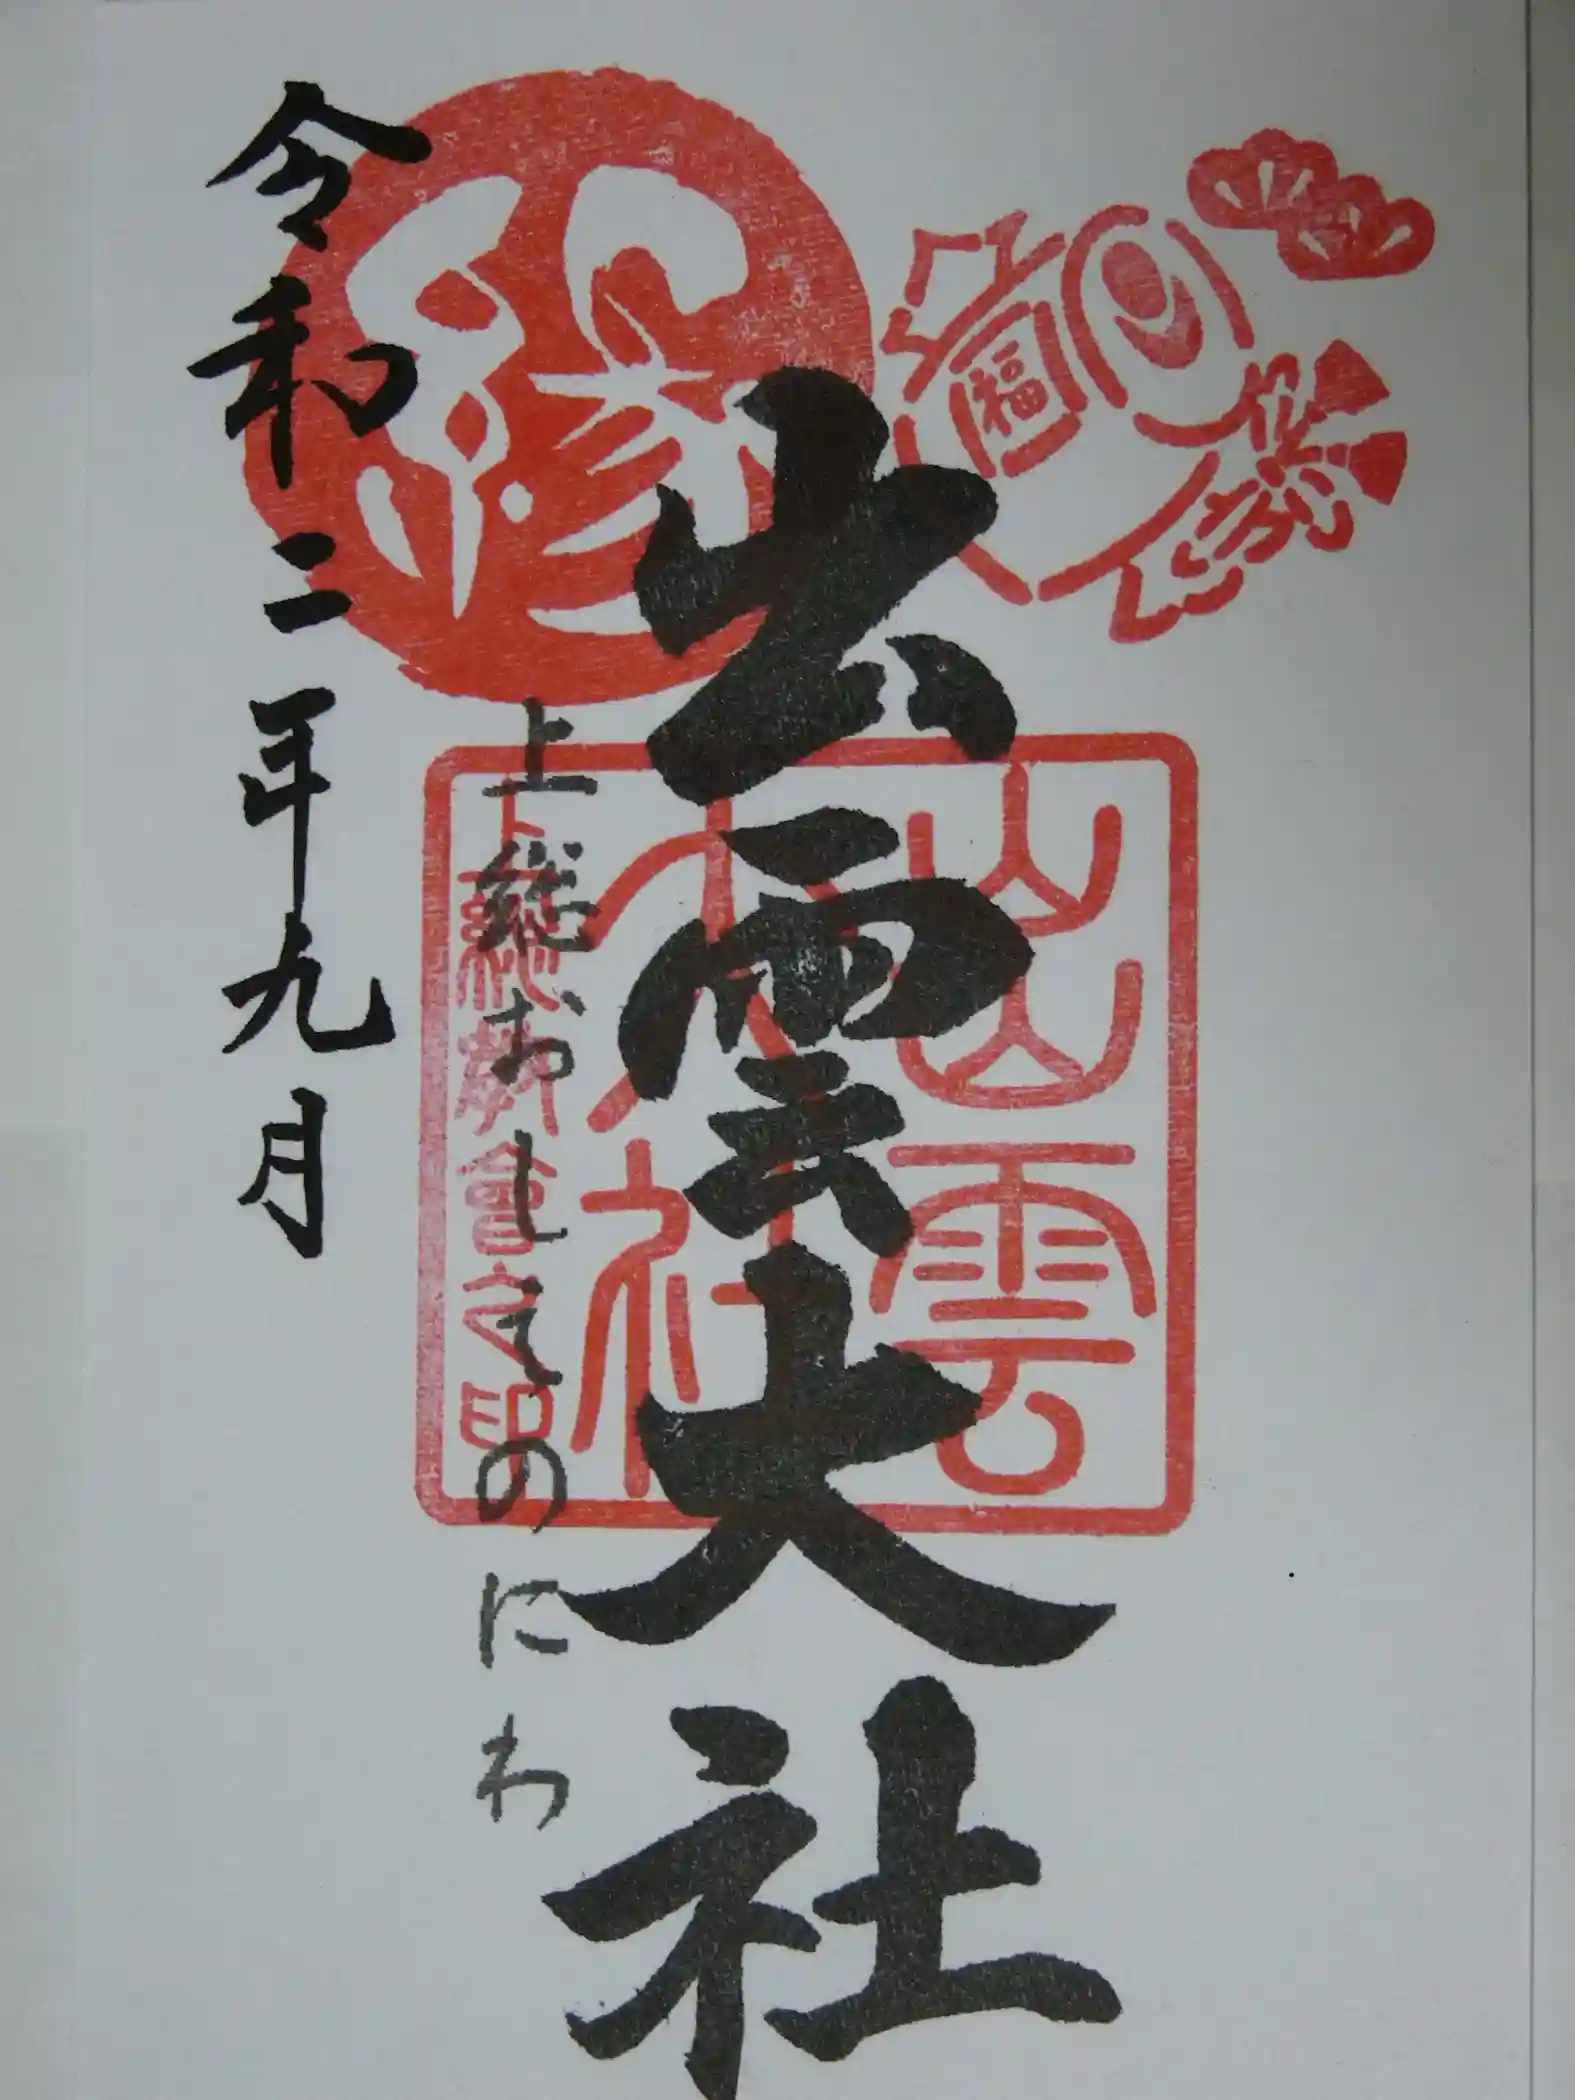 福
出雲大社
出雲
大社
上総教會之印
縁
上総おしえのにわ
令和二年九月